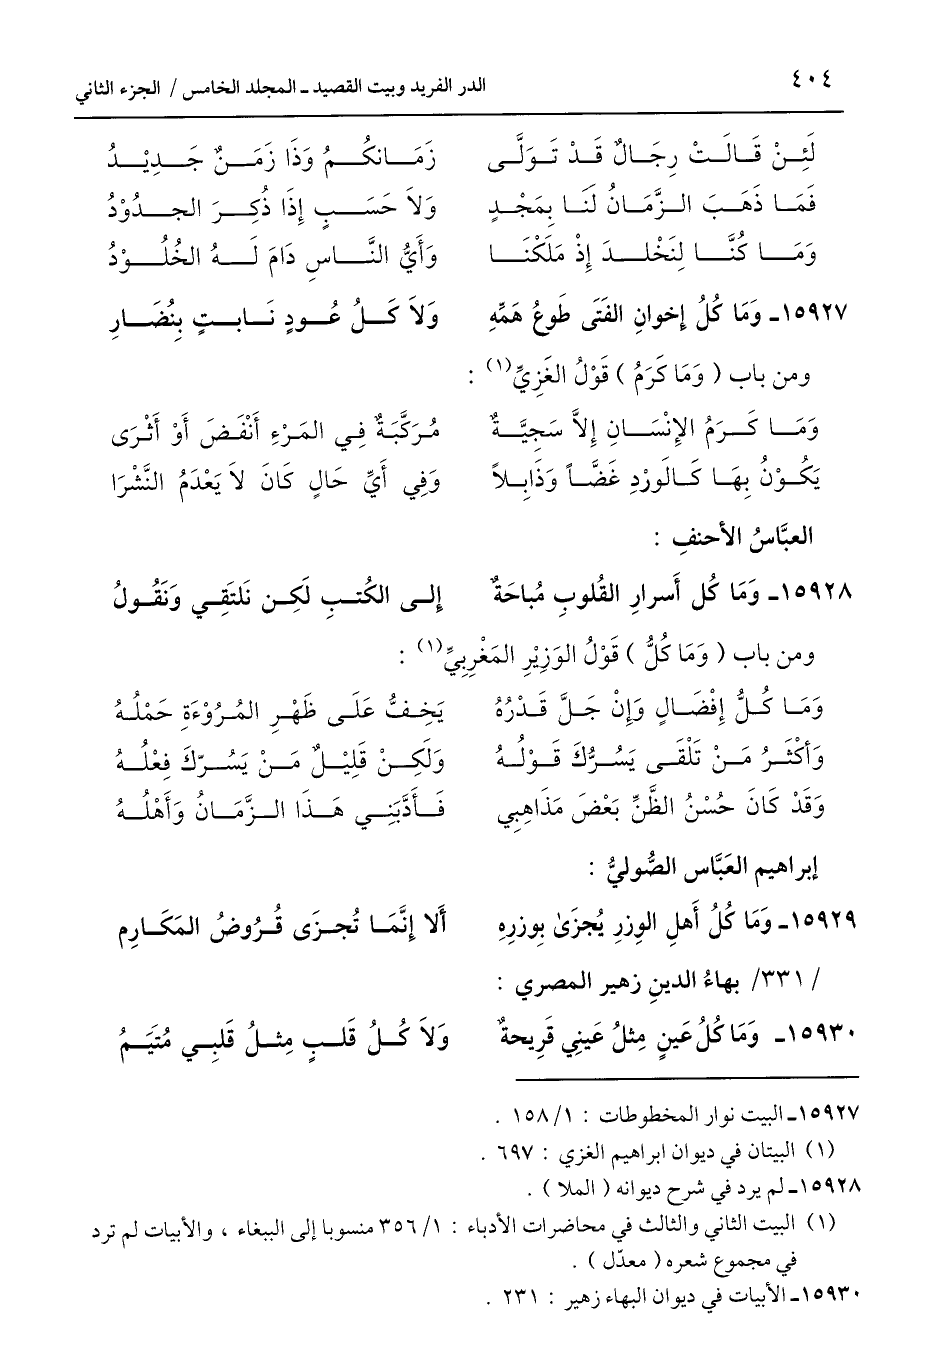 ٤٠٤ الدر الفريد وبيت القصيد ـ المجلد الخامس / الجزء الثاني
لَئِنْ قَالَتْ رِجَالٌ قَدْ تَوَلَّى زَمَانُكُمُ وَذَا زَمَنٌ جَدِيْدُ
فَمَا ذَهَبَ الزَّمَانُ لَنَا بِمَجْدٍ وَلاَ حَسَبٍ إِذَا ذُكِرَ الجدُوْدُ
وَمَا كُنَّا لِنَخْلدَ إِذْ مَلَكْنَا وَأَيُّ النَّاسِ دَامَ لَهُ الخُلُوْدُ
١٥٩٢٧ـ وَمَا كُلُّ إِخوانِ الفَتَى طَوعُ هَمِّهِ وَلاَ كَلُّ عُودٍ نَابتٍ بِنُضَارِ
ومن باب ( وَمَا كَرَمُ ) قَوْلُ الغَزِيِّ(١) :
وَمَا كَرَمُ الإِنْسَانِ إِلاَّ سَجِيَّةٌ مُرَكَّبَةٌ فِي المَرْءِ أَنْفَضَ أَوْ أَثْرَى
يَكُوْنُ بِهَا كَالوَرْدِ غَضَّاً وَذَابِلاً وَفِي أَيِّ حَالٍ كَانَ لاَ يَعْدَمُ النَّشْرَا
العبَّاسُ الأحنفِ :
١٥٩٢٨ـ وَمَا كُل أَسرارِ القُلوبِ مُباحَةٌ إِلى الكُتبِ لَكِن نَلتَقِي وَنَقُولُ
ومن باب ( وَمَا كُلُّ ) قَوْلُ الوَزِيْرِ المَغْرِبِيِّ(١) :
وَمَا كُلُّ إِفْضَالٍ وَإِنْ جَلَّ قَدْرُهُ يَخِفُّ عَلَى ظَهْرِ المُرُوْءَةِ حَمْلُهُ
وَأَكْثَرُ مَنْ تَلْقَى يَسُرُّكَ قَوْلُهُ وَلَكِنْ قَلِيْلٌ مَنْ يَسُرّكَ فِعْلُهُ
وَقَدْ كَانَ حُسْنُ الظَّنِّ بَعْضَ مَذَاهِبِي فَأَدَّبَنِي هَذَا الزَّمَانُ وَأَهْلُهُ
إبراهيم العَبَّاس الصُّوليُّ :
١٥٩٢٩ـ وَمَا كُلُّ أَهلِ الوِزرِ يُجزَىٰ بِوزرِهِ أَلا إِنَّمَا تُجزَى قُروضُ المَكَارِمِ
/ ٣٣١/ بهاءُ الدينِ زهير المصري :
١٥٩٣٠ـ وَمَا كُلُ عَينٍ مِثلُ عَينِي قَرِيحةٌ وَلاَ كُلُ قَلبٍ مِثلُ قَلبِي مُتَيَمُ
١٥٩٢٧ـ البيت نوار المخطوطات : ١/ ١٥٨ .
(١) البيتان في ديوان ابراهيم الغزي : ٦٩٧ .
١٥٩٢٨ـ لم يرد في شرح ديوانه ( الملا ) .
(١) البيت الثاني والثالث في محاضرات الأدباء : ١/ ٣٥٦ منسوبا إلى الببغاء ، والأبيات لم ترد
في مجموع شعره ( معدّل ) .
١٥٩٣٠ـ الأبيات في ديوان البهاء زهير : ٢٣١ .